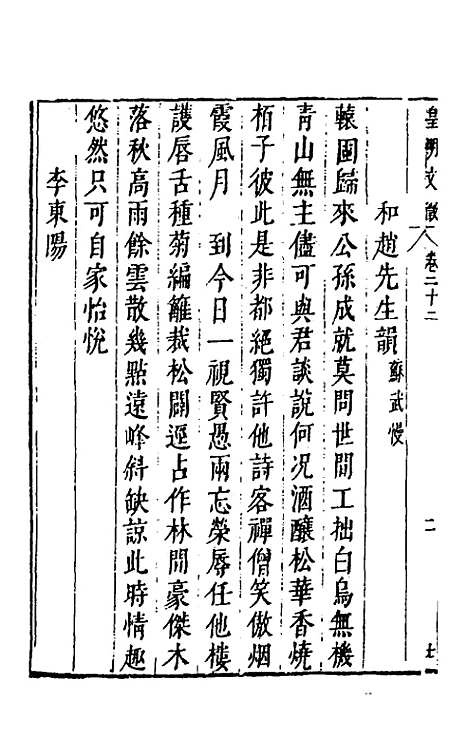 皇明文徵 卷二十二 二 七
和趙先生韻 蘇武慢
轅園歸來公孫成就莫問世間工拙白烏無機
青山無主儘可與君談說何況酒釀松華香燒
栢子彼此是非都絕獨許他詩客禪僧笑傲烟
霞風月 到今日一視賢愚兩忘榮辱任他樓
護唇舌種菊編籬栽松闢逕占作林間豪傑木
落秋高雨餘雲散幾點遠峰斜缺諒此時情趣
悠然只可自家怡悅
李東陽